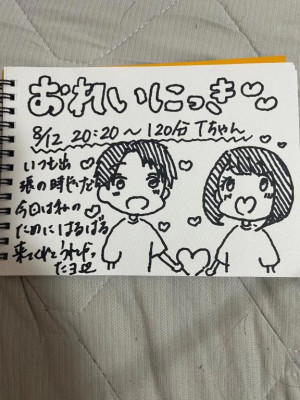 おれいにっき
8/12 20:20〜120分 Tちゃん
いつも出
張の時やだけど
今日は私の
ためにはるばる
来てくれてうれしかっ
たヨ